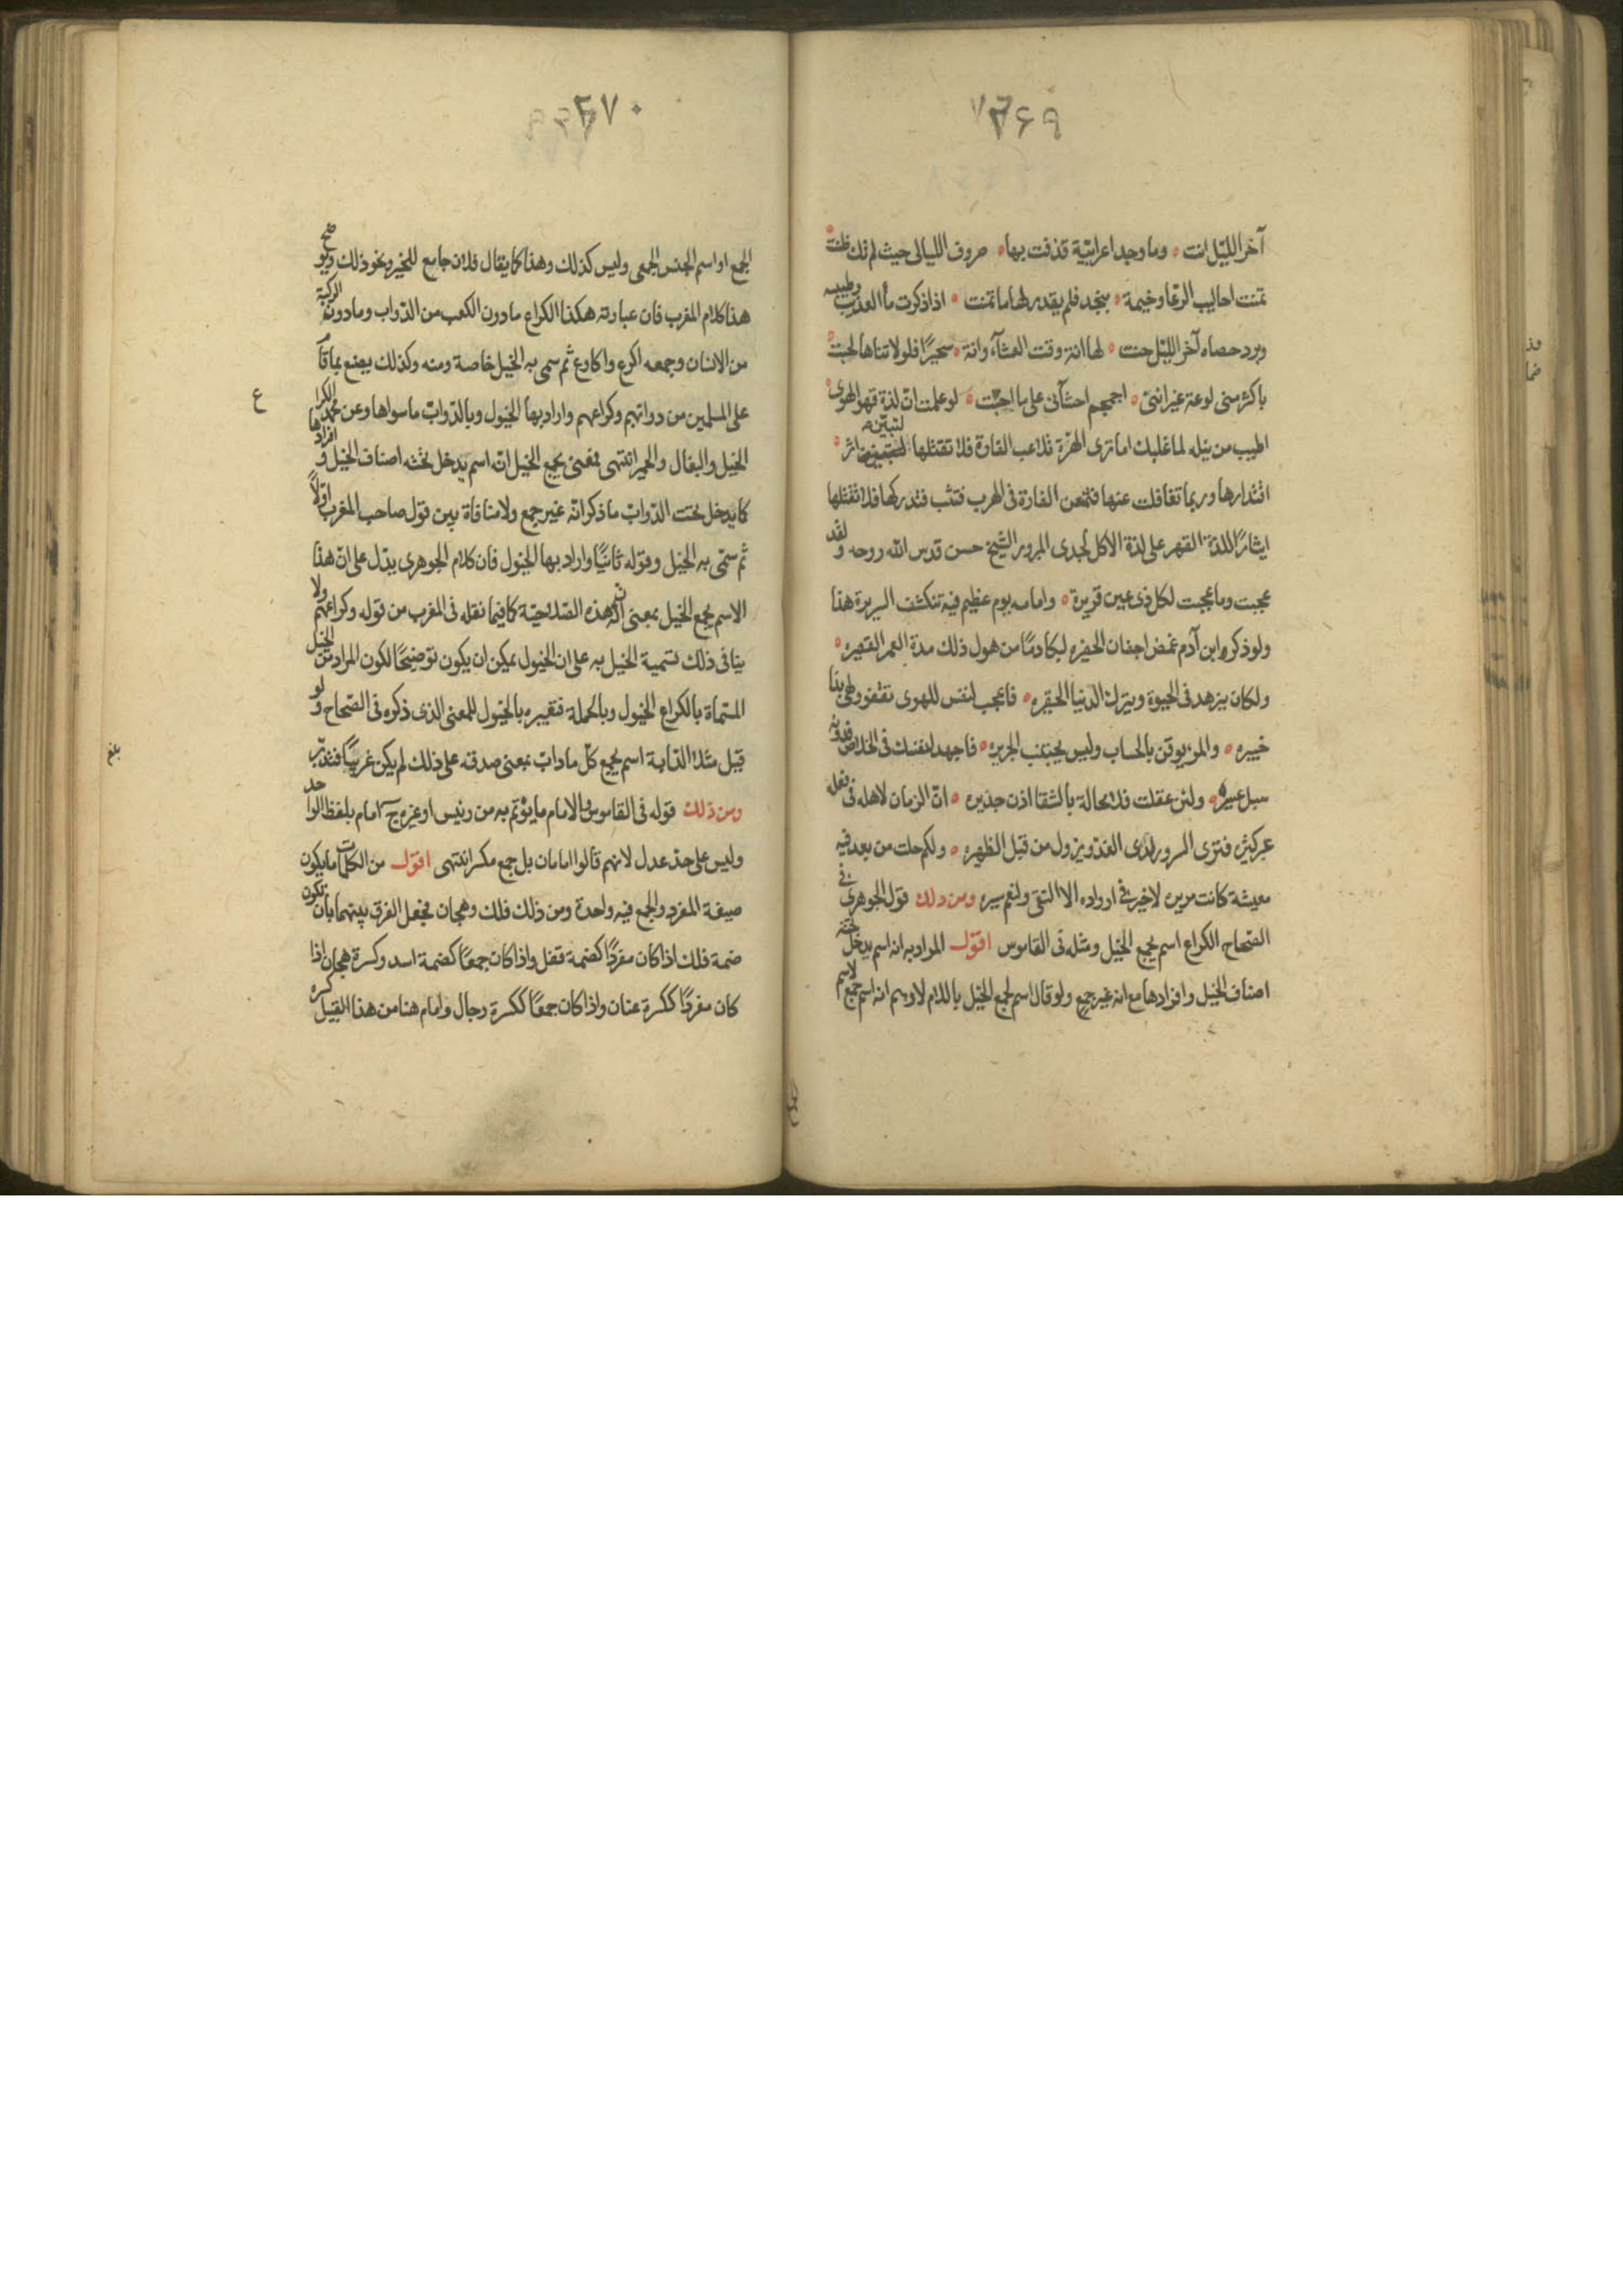 ٣٦٩
آخر الليل انت ٥ وما وجد اعرابيّة قذفت بها ٥ صروف الليالى حيث لم تك ظنت ٥
تمنت احاليب الرعا وخيمة ٥ بنجد فلم يقدر لها ما تمنت ٥ اذا ذكرت ماء العذيب وطيبه
وبرد حصاه آخر الليل حنت ٥ لها انة وقت العشاء وانة ٥ سحيرًا فلولا انتاها لجنت ٥
باكثر منى لوعة غير اننى ٥ اجمجم احشآئى على ما اجنّت ٥ لو علمت انّ لذة قهر الهوى ٥
اطيب من نيله لما غلبك اما ترى الهرّة تلاعب الفارة فلا تقتلها لتبيّن اثر ٥
اقتدارها وربما تغافلت عنها فتمعن الفارة فى الهرب فتثب فتدركها فلا تقتلها
ايثارًا للذة القهر على لذة الاكل لجدى المبرور الشيخ حسن قدس الله روحه ولقد
عجبت وما عجبت لكل ذى عين قريرة ٥ وامامه يوم عظيم فيه تنكشف السريرة هذا
ولو ذكر ابن آدم غمض اجفان الحفيره لبكا دمًا من هول ذلك مدة العمر القصيره ٥
ولكان يزهد فى الحيوة ويترك الدنيا الحقيره ٥ فاعجب لنفس للهوى تقفو وهى بنا
خبيره ٥ والمرء يوقن بالحساب وليس يجتنب الجريره ٥ فاجهد لنفسك فى الخلاص فدونه
سبل عسيره ٥ ولئن عقلت فلا محالة بالشقا اذن جديره ٥ انّ الزمان لاهله فى فعله
عبر كثيره فترى السرور لدى الغدّ ويزول من قبل الظهيره ٥ ولكم حلت من بعد فيه
معيشة كانت مريره لا خير فى ازواده الا التقى ولنعم سيره ومن ذلك قول الجوهرى فى
الصّحاح الكراع اسم يجمع الخيل ومثله فى القاموس اقول المراد به انه اسم يدخل تحته
اصناف الخيل وافرادها مع انه غير جمع ولو قال اسم لجمع الخيل باللام لاوهم انه اسم جمع لاسم
٣٧٠
الجمع او اسم الجنس الجمعى وليس كذلك وهذا كما يقال فلان جامع للخير ونحو ذلك ويوضح
هذا كلام المغرب فان عبارته هكذا الكراع ما دون الكعب من الدّواب وما دون الركبة
من الانسان وجمعه اكرع واكارع ثم سمى به الخيل خاصة ومنه وكذلك يصنع بما قام
على المسلمين من دوابّهم وكراعهم واراد بها الخيول وبالدّوابّ ما سواها وعن محمد الكراع
الخيل والبغال والحمير انتهى فمعنى يجمع الخيل انّه اسم يدخل تحته اصناف الخيل وافرادها
كما يدخل تحت الدّوابّ ما ذكر انّه غير جمع ولا منافاة بين قول صاحب المغرب اوّلًا
ثم سمّى به الخيل وقوله ثانيًا واراد بها الخيول فان كلام الجوهرى يدّل على انّ هذا
الاسم يجمع الخيل بمعنى انّ له هذه الصّلاحيّة كما فيما نقله فى المغرب من قوله وكراعهم ولا
ينافى ذلك تسمية الخيل به على ان الخيول يمكن ان يكون توضيحًا لكون المراد من الخيل
المسّماة بالكراع الخيول وبالجملة فتعبيره بالخيول للمعنى الذى ذكره فى الصّحاح ولو
قيل مثلا الدّابة اسم يجمع كلّ ما دابّ بمعنى صدقه على ذلك لم يكن غريبًا فتدبّر
ومن ذلك قوله فى القاموس والامام ما يؤتّم به من رئيس او غيره ج امام بلفظ الواحد
وليس على حدّ عدل لانهم قالوا امامان بل جمع مكسر انتهى اقول من الكلمات ما يكون
صيغة المفرد والجمع فيه واحدة ومن ذلك فلك وهجان فجعل الفرق بينهما بان تكون
ضمة فلك اذا كان مفردًا كضمة قفل واذا كان جمعًا كضمة اسد وكسرة هجان اذا
كان مفردًا ككسرة عنان واذا كان جمعًا ككسرة رجال وامام هنا من هذا القبيل كسره
ع
بلغ